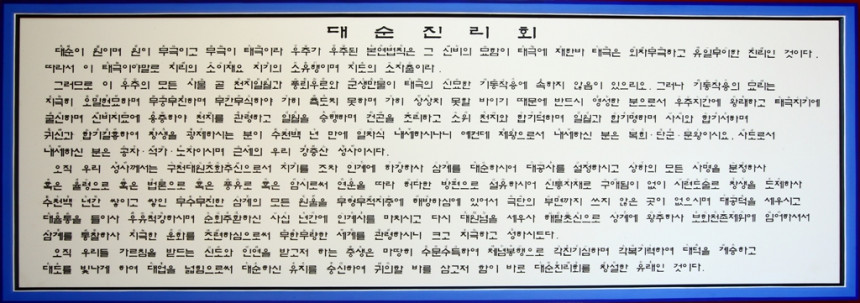 대순진리회
대순이 원이며 원이 무극이고 무극이 태극이라 우주가 우주된 본연법칙은 그 신비의 묘함이 태극에 재한바 태극은 외차무극하고 유일무이한 진리인 것이다.
따라서 이 태극이야말로 지리의 소이재요 지기의 소유행이며 지도의 소자출이라.
그러므로 이 우주의 모든 사물 곧 천지일월과 풍뢰우로와 군생만물이 태극의 신묘한 기동작용에 속하지 않음이 있으리오. 그러나 기동작용의 묘리는
지극히 오밀현묘하며 무궁무진하며 무간무식하야 가히 측도치 못하며 가히 상상치 못할 바이기 때문에 반드시 영성한 분으로서 우주지간에 왕래하고 태극지기에
굴신하며 신비지묘에 응증하야 천지를 관령하고 일월을 승행하며 건곤을 조리하고 소위 천지와 합기덕하며 일월과 합기명하며 사시와 합기서하며
귀신과 합기길흉하여 창생을 광제하시는 분이 수천백 년 만에 일차식 내세하시나니 예컨대 제왕으로서 내세하신 분은 복희·단군·문왕이시요. 사도로서
내세하신 분은 공자·석가·노자이시며 근세의 우리 강증산 성사이시다.
오직 우리 성사께서는 구천대원조화주신으로서 지기를 조차 인계에 하강하사 삼계를 대순하시며 대공사를 설정하시고 상하의 모든 사명을 분정하사
혹은 율령으로 혹은 법론으로 혹은 풍유로 혹은 암시로써 연운을 따라 허다한 방편으로 설유하시어 신통자재로 구애됨이 없이 시련도술로 창생을 도제하사
수천백 년간 쌓이고 쌓인 무수무진한 삼계의 모든 원울을 무형무적지중에 해방하심에 있어서 극단의 부면까지 쓰지 않은 곳이 없으시며 대공덕을 세우시고
대율통을 들이사 유유적강하시며 순환주환하신 사십 년간에 인계사를 마치시고 다시 대원법을 세우사 해탈초신으로 상계에 왕주하사 보화천존제위에 임어하셔서
삼계를 통찰하사 지극한 운화를 조련하심으로써 무한무량한 세계를 관령하시니 크고 지극하고 성하시도다.
오직 우리들 가르침을 받드는 신도와 인연을 받고저 하는 중생은 마땅히 수문수득하여 체념봉행으로 각진기심하며 각복기력하여 대덕을 계승하고
대도를 빛나게 하여 대업을 넓힘으로써 대순하신 유지를 숭신하여 귀의할 바를 삼고저 함이 바로 대순진리회를 창설한 유래인 것이다.